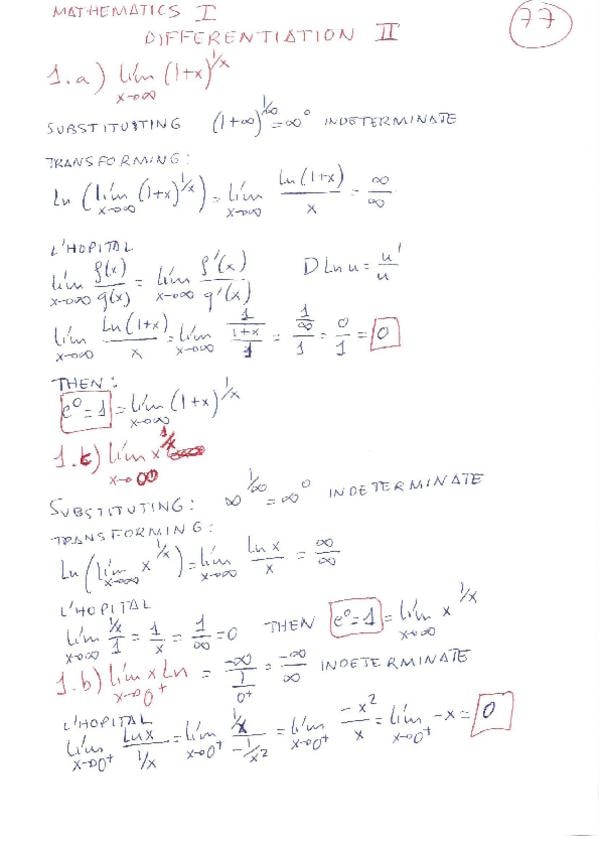 MATHEMATICS I
77
DIFFERENTIATION II
1.a) lím x→∞ (1+x)^1/x
SUBSTITUSTING (1+∞)^1/∞ = ∞^0 INDETERMINATE
TRANSFORMING:
Ln (lím x→∞ (1+x)^1/x) = lím x→∞ Ln(1+x)/x = ∞/∞
L'HOPITAL
lím x→∞ f(x)/g(x) = lím x→∞ f'(x)/g'(x) D Ln u = u'/u
lím x→∞ Ln(1+x)/x = lím x→∞ (1/(1+x))/1 = (1/∞)/1 = 0/1 = 0
THEN:
e^0 = 1 = lím x→∞ (1+x)^1/x
1.c) lím x→∞ x^1/x
SUBSTITUTING: ∞^1/∞ = ∞^0 INDETERMINATE
TRANSFORMING:
Ln (lím x→∞ x^1/x) = lím x→∞ Ln x/x = ∞/∞
L'HOPITAL
lím x→∞ (1/x)/1 = 1/x = 1/∞ = 0 THEN e^0 = 1 = lím x→∞ x^1/x
1.b) lím x→0+ x Ln = -∞/(1/0+) = -∞/∞ INDETERMINATE
L'HOPITAL
lím x→0+ Lnx/(1/x) = lím x→0+ (1/x)/(-1/x²) = lím x→0+ -x²/x = lím x→0+ -x = 0